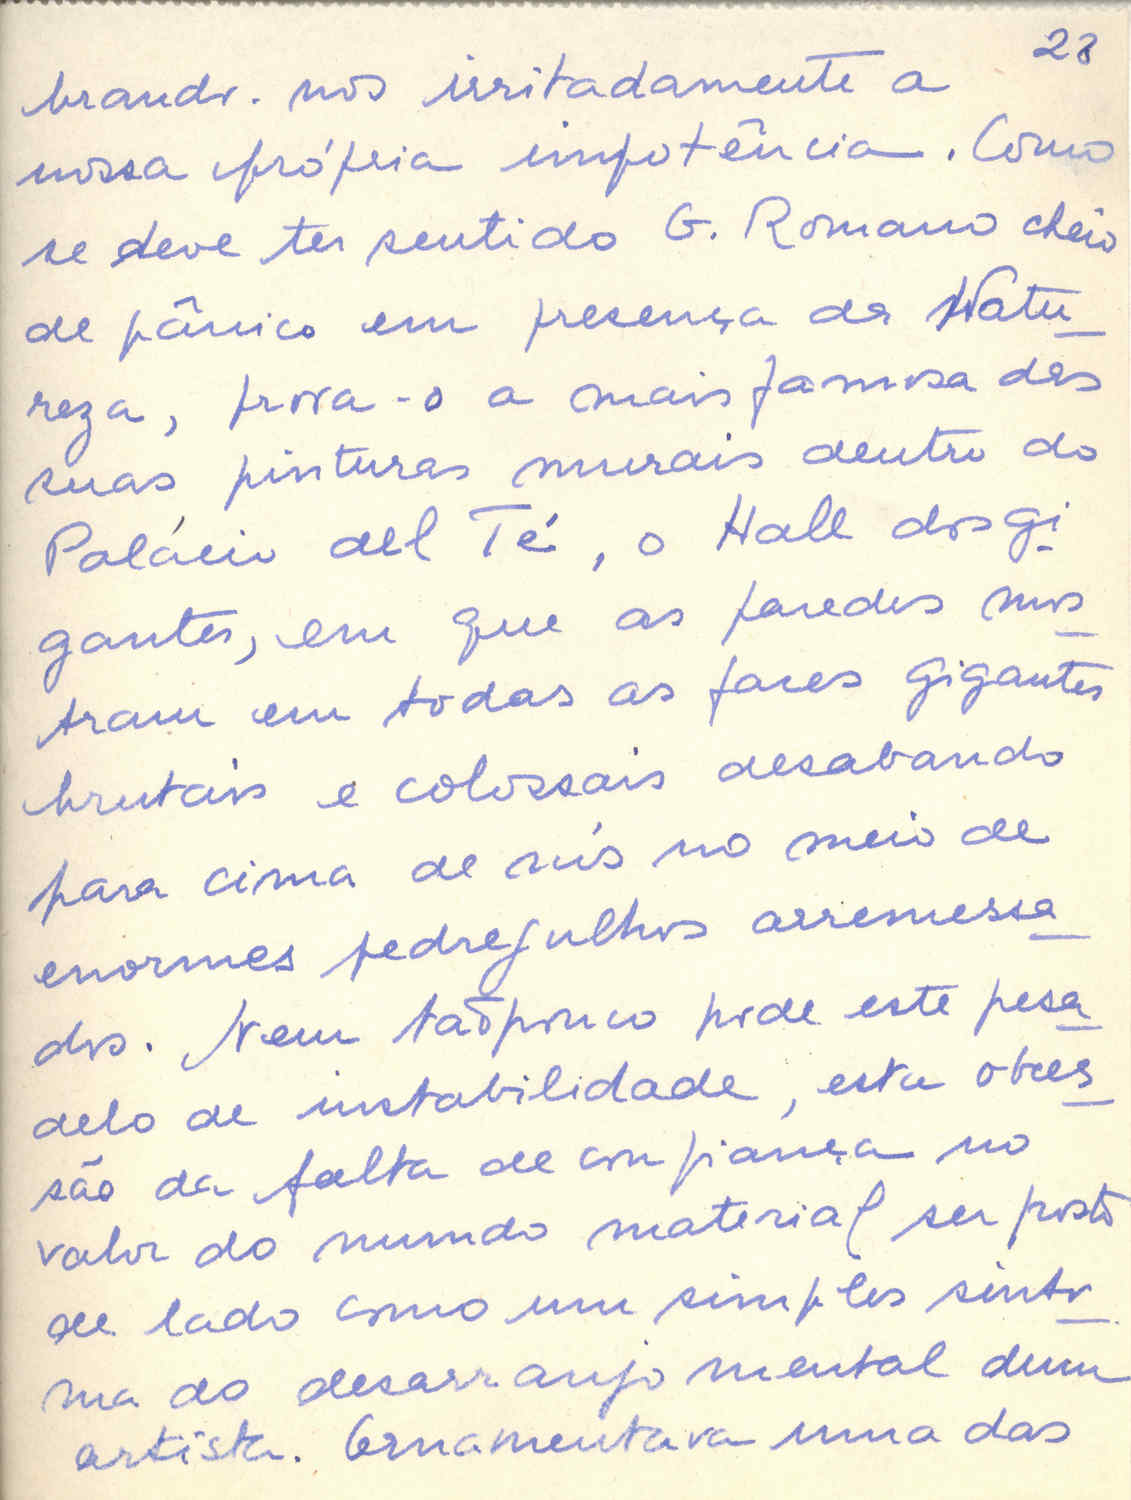 28
brando-nos irritadamente a
nossa própria impotência. Como
se deve ter sentido G. Romano cheio
de pânico em presença da Natu
reza, prova-o a mais famosa das
suas pinturas murais dentro do
Palácio del Té, o Hall dos gi
gantes, em que as paredes mos
tram em todas as faces gigantes
brutais e colossais desabando
para cima de nós no meio de
enormes pedregulhos arremessa
dos. Nem tão pouco pode este pesa
delo de instabilidade, esta obses
são da falta de confiança no
valor do mundo material ser posto
de lado como um simples sinto
ma do desarranjo mental dum
artista. Ornamentava uma das